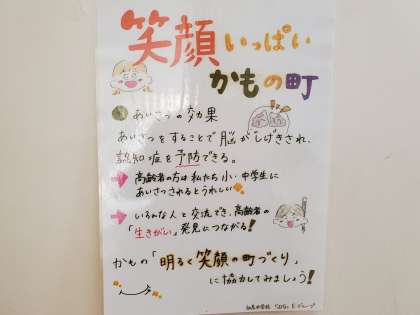 笑顔いっぱい
かもの町
あいさつの効果
あいさつをすることで脳がしげきされ、
認知症を予防できる。
→ 高齢者の方は私たち小・中学生に
あいさつされるとうれしい
→ いろんな人と交流でき、高齢者の
「生きがい」発見につながる!
かもの「明るく笑顔の町づくり」
に協力してみましょう!
SDGs Eグループ